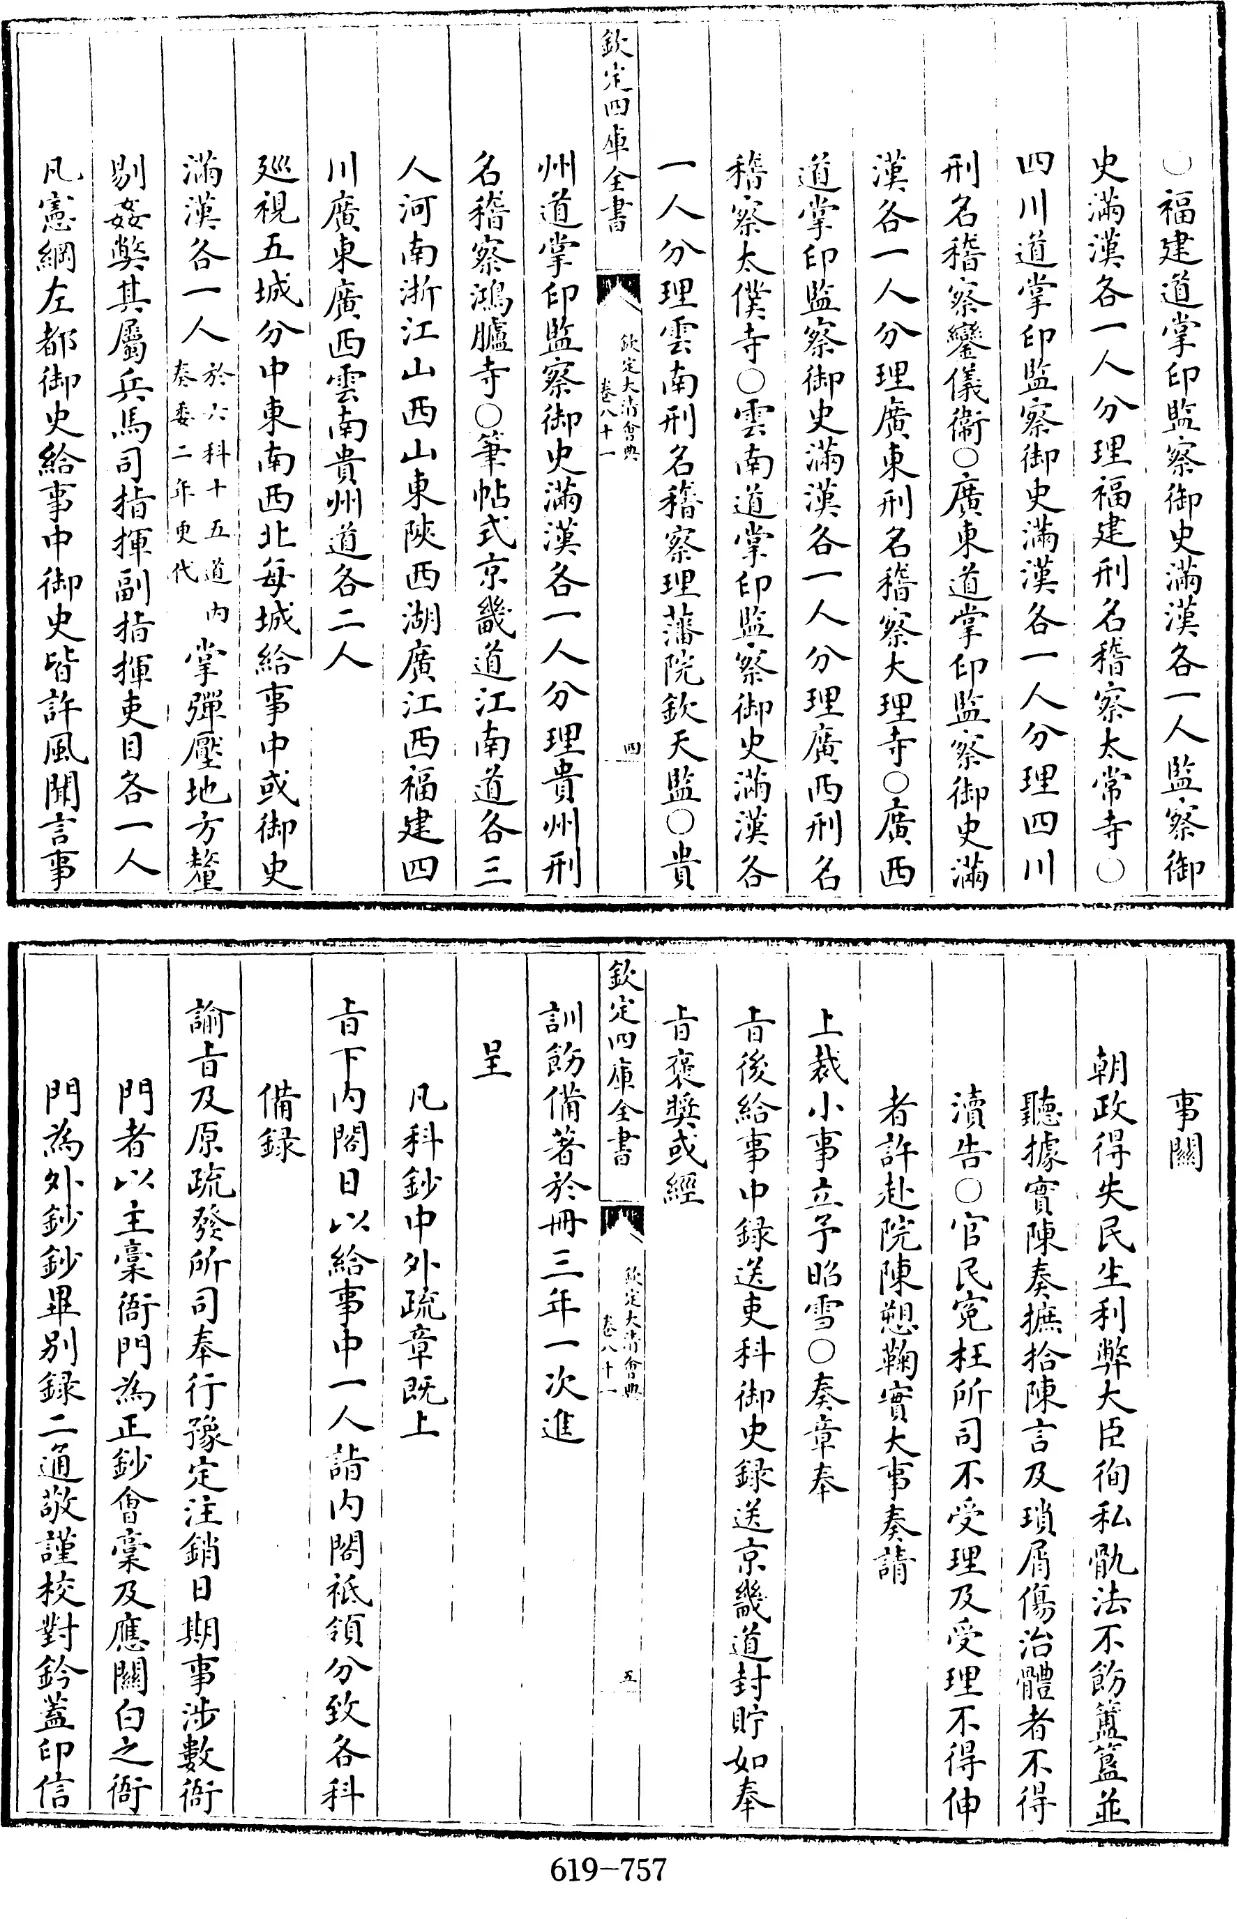 ○福建道掌印監察御史滿漢各一人監察御
史滿漢各一人分理福建刑名稽察太常寺○
四川道掌印監察御史滿漢各一人分理四川
刑名稽察鑾儀衛○廣東道掌印監察御史滿
漢各一人分理廣東刑名稽察大理寺○廣西
道掌印監察御史滿漢各一人分理廣西刑名
稽察太僕寺○雲南道掌印監察御史滿漢各
一人分理雲南刑名稽察理藩院欽天監○貴
欽定四庫全書
欽定大清會典
卷八十一
四
州道掌印監察御史滿漢各一人分理貴州刑
名稽察鴻臚寺○筆帖式京畿道江南道各三
人河南浙江山西山東陝西湖廣江西福建四
川廣東廣西雲南貴州道各二人
巡視五城分中東南西北每城給事中或御史
滿漢各一人於六科十五道內奏委二年更代掌彈壓地方釐
剔姦獘其屬兵馬司指揮副指揮吏目各一人
凡憲綱左都御史給事中御史皆許風聞言事
事關
朝政得失民生利弊大臣徇私骫法不飭簠簋並
聽據實陳奏摭拾陳言及瑣屑傷治體者不得
瀆告○官民寃枉所司不受理及受理不得伸
者許赴院陳愬鞠實大事奏請
上裁小事立予昭雪○奏章奉
旨後給事中録送吏科御史録送京畿道封貯如奉
旨褒奬或經
欽定四庫全書
欽定大清會典
卷八十一
五
訓飭備著於冊三年一次進
呈
凡科鈔中外疏章既上
旨下內閣日以給事中一人詣內閣祗領分致各科
備録
諭旨及原疏發所司奉行豫定注銷日期事涉數衙
門者以主稾衙門為正鈔會稾及應關白之衙
門為外鈔鈔畢別録二通敬謹校對鈐蓋印信
619-757